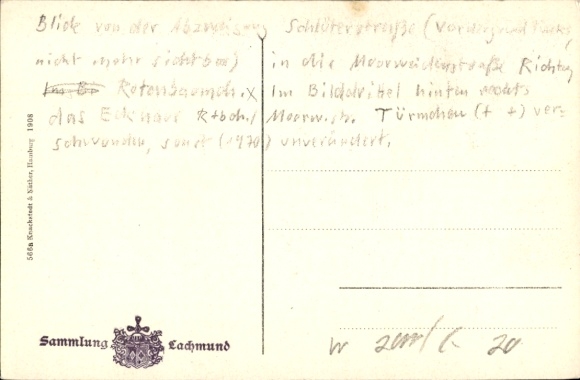 Blick von der Abzweigung Schlüterstraße (Vordergrund links,
nicht mehr sichtbar) in die Moorweidenstraße Richtung
Rotenbaumch. x Im Bilddrittel hinten rechts
das Eckhaus Rtbch./Moorw.str. Türmchen (+ +) ver-
schwunden, sonst (1970) unverändert.
566a Knackstedt & Näther, Hamburg 1908
Sammlung Lachmund
20